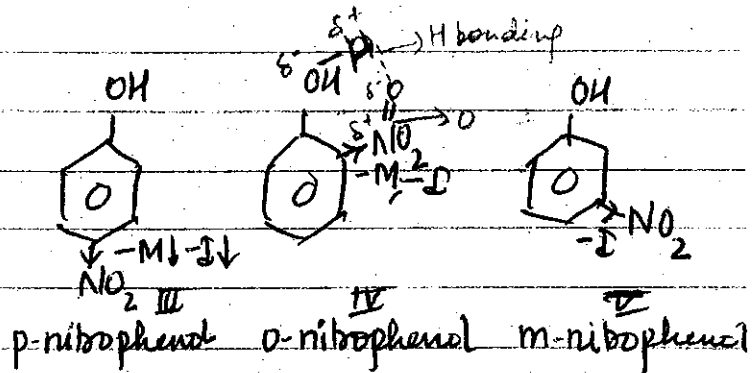 δ+
δ- H → H bonding
OH OH δ- O OH
δ+ NO2 → O
-M, -I
-M↓ -I↓ -I NO2
NO2
III IV V
p-nitrophenol o-nitrophenol m-nitrophenol